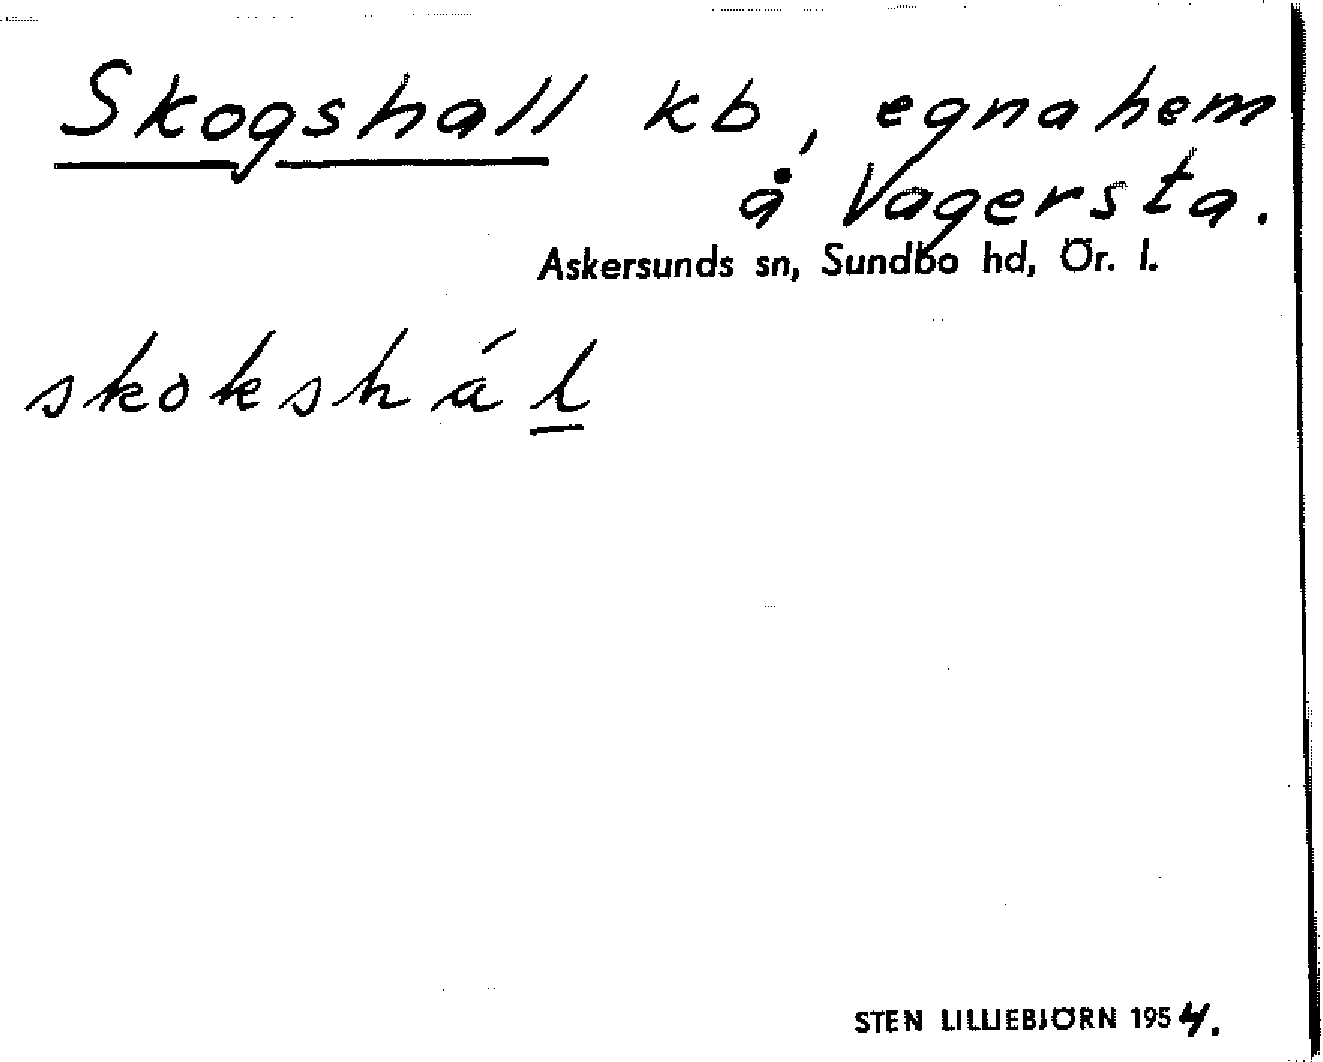 Skogshall kb, egnahem
å Vagersta.
Askersunds sn, Sundbo hd, Ör. l.
skokshál
STEN LILLIEBJÖRN 1954.